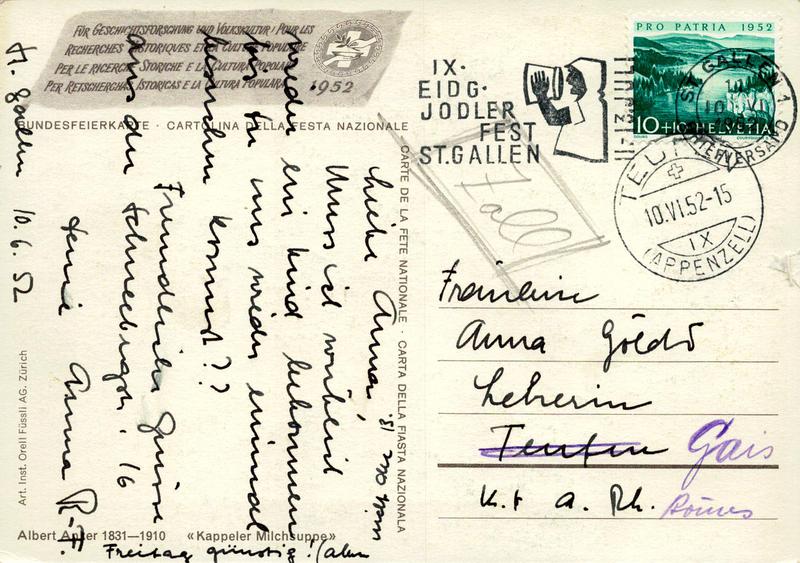 FÜR GESCHICHTSFORSCHUNG UND VOLKSKULTUR / POUR LES
RECHERCHES HISTORIQUES ET LA CULTURE POPULAIRE
PER LE RICERCHE STORICHE E LA CULTURA POPOLARE
PER RETSCHERCHAS ISTORICAS E LA CULTURA POPULARA 1952
BUNDESFEIERKARTE · CARTOLINA DELLA FESTA NAZIONALE
CARTE DE LA FÊTE NATIONALE · CARTA DELLA FIASTA NAZIONALA
St. Gallen 10.6.52
Liebe Anna!
Muss ich wirklich
ein Kind bekommen
bis Du uns wieder einmal
kommst??
Freundliche Grüsse
aus der Schneebergstr. 16
Deine Anna R-F.
Freitag günstig! (aber
IX.
EIDG.
JODLER
FEST
ST. GALLEN
PRO PATRIA 1952
10+10 HELVETIA
ST. GALLEN 1
BRIEFVERSAND
TEUFEN
10.VI.52-15
IX
(APPENZELL)
Fräulein
Anna Göldi
Lehrerin
Teufen Gais
Kt. A. Rh.
Art. Inst. Orell Füssli AG. Zürich
Albert Anker 1831–1910 «Kappeler Milchsuppe»